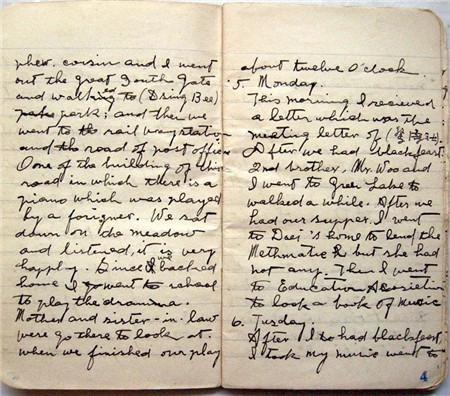 phew. cousin and I went
out the great South Gate
and walked to (Dsing Bee)
park; and then we
went to rail way station
and the road of post office
One of the building of this
road in which there is a
piano which was played
by a forigner. We sat
down on the meadow
and listened, it is very
happy. Since I was backed
home I went to school
to play the dramma.
Mother and sister-in-law
were go there to look at
when we finished our play
about twelve O'clock
5. Monday.
This morning I recieved
a letter which was the
meeting letter of (
After we had blackfeast.
2nd brother, Mr. Woo and
I went to Green Lake to
walked a while. After we
had our supper. I went
to Doej's home to lend the
Methmatic but she had
not any. Then I went
to Education Association
to look a book of music
6. Tusday.
After I had blackfeast
I took my music went to
4